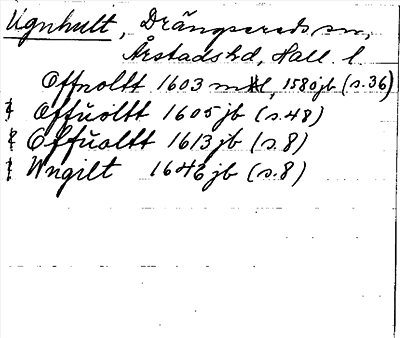 Ugnhult, Drängsereds sn,
Årstads hd, Hall. l.
Offnoltt 1603 mtl, 1580 jb (s.36)
Offŭoltt 1605 jb (s.48)
Offŭaltt 1613 jb (s.8)
Wngilt 1646 jb (s.8)